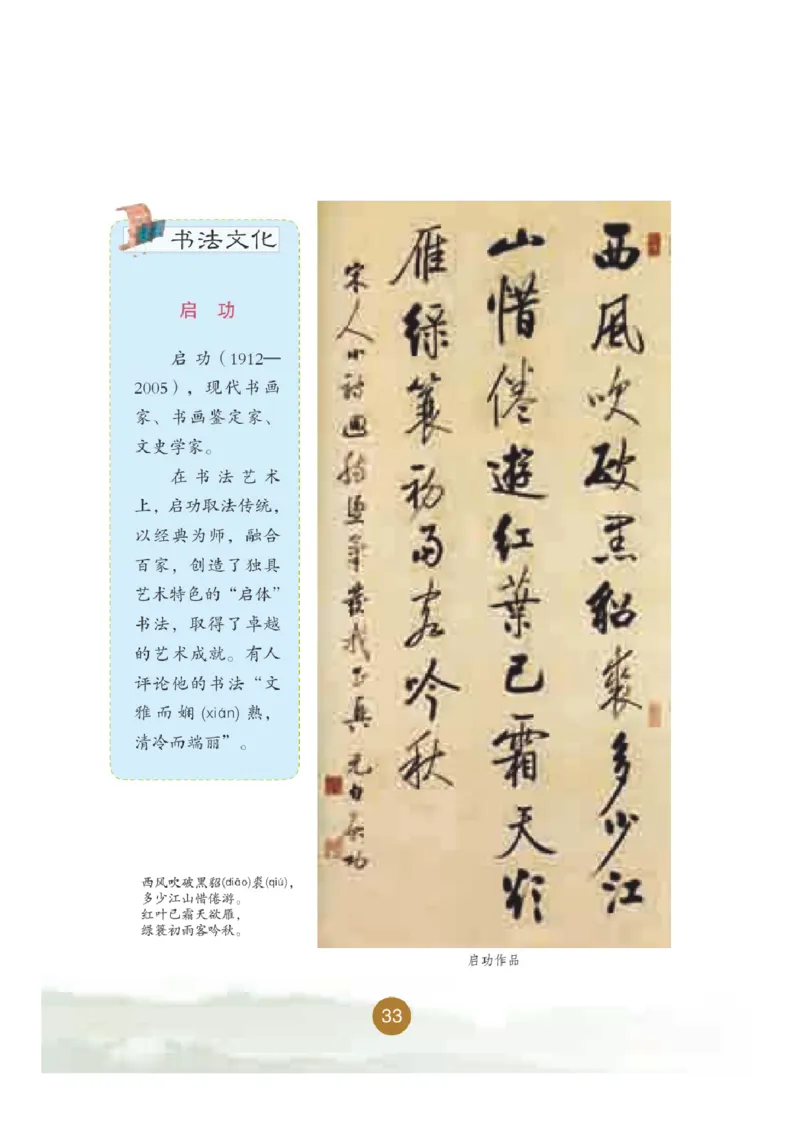 书法文化
启 功
启功（1912—
2005），现代书画
家、书画鉴定家、
文史学家。
在书法艺术
上，启功取法传统，
以经典为师，融合
百家，创造了独具
艺术特色的“启体”
书法，取得了卓越
的艺术成就。有人
评论他的书法“文
雅而娴(xián)熟，
清冷而端丽”。
西风吹破黑貂(diāo)裘(qiú)，
多少江山惜倦游。
红叶已霜天欲雁，
绿蓑初雨客吟秋。
西风吹破黑貂裘多少江
山惜倦遊红葉已霜天欲
雁绿蓑初雨客吟秋
宋人小詩 元白启功
启功作品
33